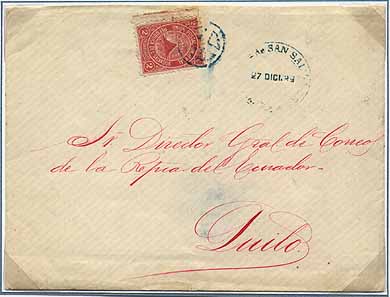 SAN SAL
27 DICI. 89
2 2
Sr. Director Gral. de Correos
de la Repca del Ecuador
Quito.